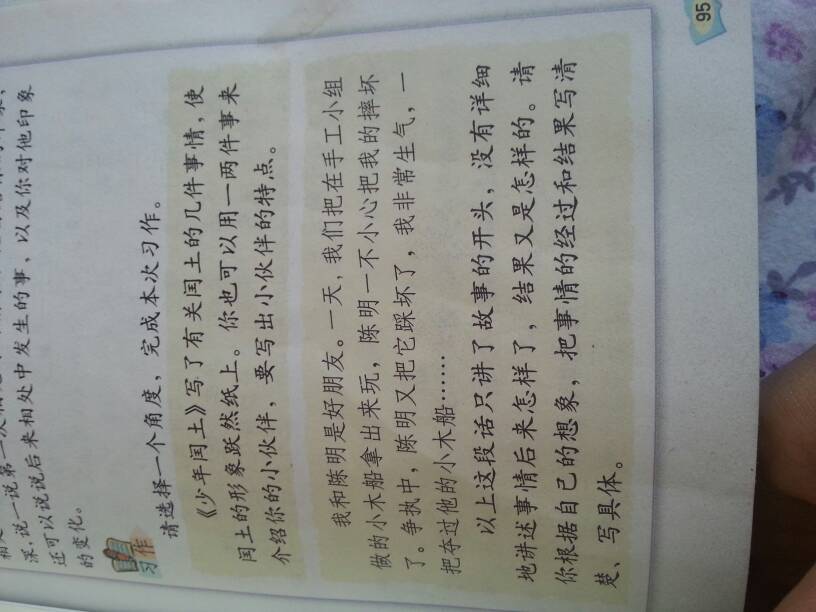 深,说一说第一次
还可以说说后来相处中发生的事、以及你对他印象
的变化。
习作
请选择一个角度，完成本次习作。
《少年闰土》写了有关闰土的几件事情，使
闰土的形象跃然纸上。你也可以用一两件事来
介绍你的小伙伴，要写出小伙伴的特点。
我和陈明是好朋友。一天，我们把在手工小组
做的小木船拿出来玩，陈明一不小心把我的摔坏
了。争执中，陈明又把它踩坏了，我非常生气，一
把夺过他的小木船……
以上这段话只讲了故事的开头，没有详细
地讲述事情后来怎样了，结果又是怎样的。请
你根据自己的想象，把事情的经过和结果写清
楚、写具体。
95